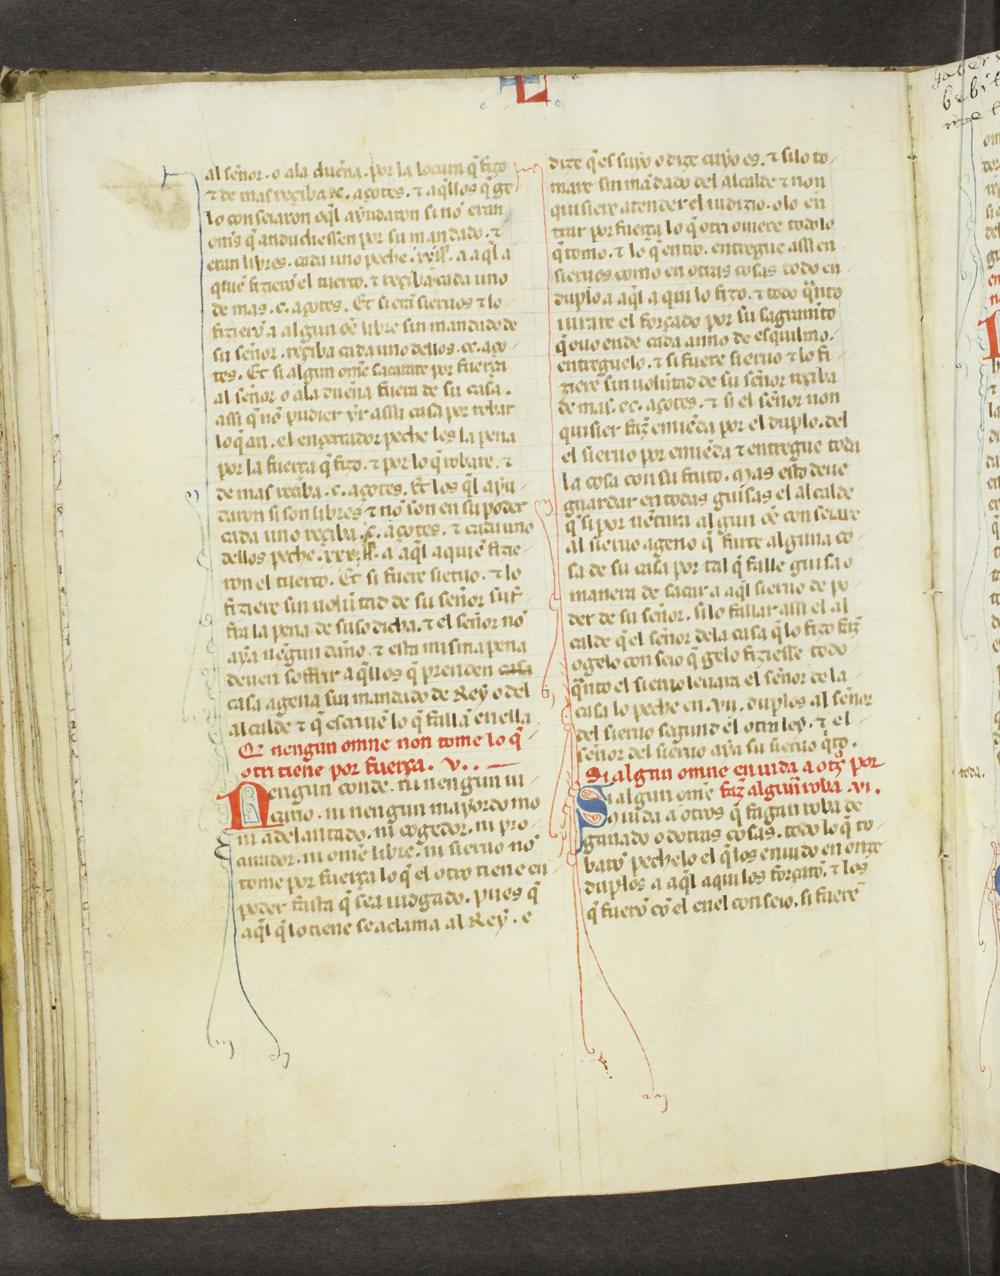 L
al señor. o ala dueña. por la locura q̃ fizo
τ de mas reçiba .c. açotes. τ aq̃llos q̃ ge
lo conseiaron oq̃l ayudaron si nõ eran
om̃s q̃ anduuiessen por su mandado. τ
eran libres. cada uno peche a aq̃l a
quiẽ fizierõ el tuerto. τ reçiba cada uno
de mas .c. açotes. Et si erã sieruos τ lo
fizierõ a algun oẽ libre sin mandado de
su señor. reçiba cada uno dellos .cc. aço
tes. Et si algun omẽ sacare por fuerça
al señor o ala dueña fuera de su casa.
assi q̃ nõ pudier yr assu casa por robar
loq̃ an. el ençerrador peche les la pena
por la fuerça q̃ fizo. τ por lo q̃ robare. τ
de mas reciba .c. açotes. Et los q̃l ayu
daron si son libres τ nõ son en su poder
cada uno reçiba .c. açotes. τ cada uno
dellos peche a aq̃l aquiẽ fizie
ron el tuerto. Et si fuere sieruo. τ lo
fiziere sin uolũtad de su señor suf
fra la pena de suso dicha. τ el señor nõ
aya nẽgun daño. τ esta misma pena
deuen soffrir aq̃llos q̃ prenden casa
casa agena sin mandado de Rey o del
alcalde τ q̃ escriuẽ lo q̃ fallã en ella.
Q̃ nengun omne non tome lo q̃
otri tiene por fuerça. V.
Nengun conde. ni nengun iu
cano. ni nengun mayordomo
ni adelantado. ni cogedor. ni pro
curador. ni omẽ libre. ni sieruo nõ
tome por fuerça lo q̃ el otro tiene en
poder fasta q̃ sea iudgado. pues q̃
aq̃l q̃ lo tiene se aclama al Rey. e
dize q̃ es suyo o dize cuyo es. τ silo to
mare sin mãdado del alcalde τ non
quisiere atender el iudizio. olo en
trar por fuerça lo q̃ otri ouiere todolo
q̃ tomo. τ lo q̃ entro. entregue assi en
sieruos como en otras cosas todo en
duplo a aq̃l a qui lo fizo. τ todo q̃nto
iurare el forçado por su sagramẽto
q̃ ouo ende cada anno de esquilmo.
entreguelo. τ si fuere sieruo τ lo fi
ziere sin uolũtad de su señor reçiba
de mas .cc. açotes. τ si el señor non
quisier faz̃ emiẽda por el duplo. del
el sieruo por emiẽda τ entregue toda
la cosa con su fruto. Mas esto deue
guardar en todas guisas el alcalde
q̃ si por uẽtura algun oẽ conseiare
al sieruo ageno q̃ furte alguna co
sa de su casa por tal q̃ falle guisa o
manera de sacar a aq̃l sieruo de po
der de su señor. silo fallar assi el al
calde q̃ el señor dela casa q̃ lo fizo faz̃
ogelo conseio q̃ gelo fizielle todo
q̃nto el sieruo leuara el señor de la
casa lo peche en .vii. duplos al señor
del sieruo segund el otra ley. τ el
señor del sieruo aya su sieruo q̃to.
Si algun omne enuida a otr̃ por
faz̃ algũ roba .vi.
Si algun omẽ
o uida a otros q̃ fagan roba de
ganado o dotras cosas. todo lo q̃ ro
barõ pechelo el q̃ los enuido en onze
duplos a aq̃l aqui los forçarõ. τ los
q̃ fuerõ cõ el enel conseio. si fuerẽ
toda.